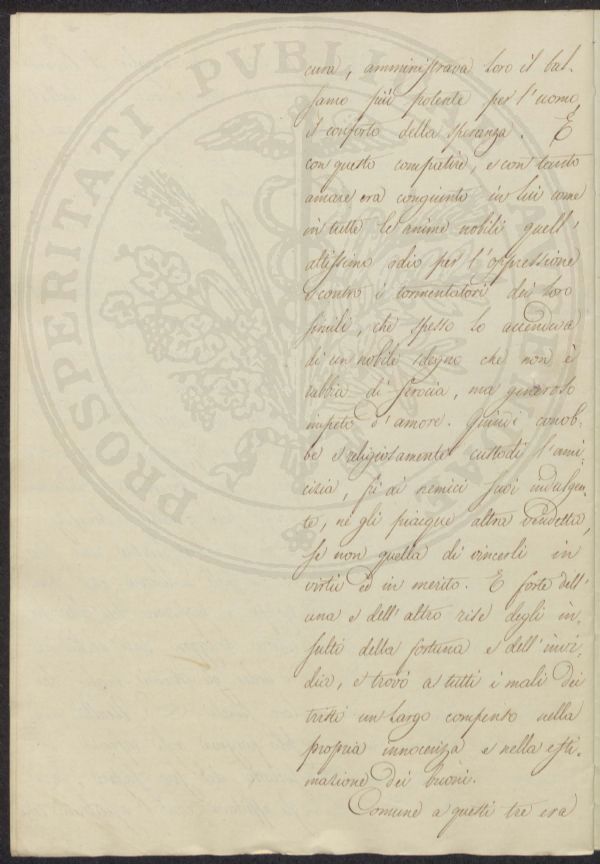 cura, amministrava loro il bal-
samo più potente per l'uomo,
il conforto della speranza. E
con questo compatire, e con tanto
amare era congiunto in lui come
in tutte le anime nobili quell'
altissimo odio per l'oppressione
e contro i tormentatori dei loro
simili, che spesso lo accendeva
di un nobile sdegno che non è
rabbia di ferocia, ma generoso
impeto d'amore. Quindi conob-
be e religiosamente custodì l'ami
cizia, fu ai nemici suoi indulgen-
te, nè gli piacque altra vendetta,
se non quella di vincerli in
virtù ed in merito. E forte dell'
una e dell'altro rise degli in-
sulti della fortuna e dell'invi-
dia, e trovò a tutti i mali dei
tristi un largo compenso nella
propria innocenza e nella esti-
mazione dei buoni.
Comune a questi tre era
PROSPERITATI PVBLI